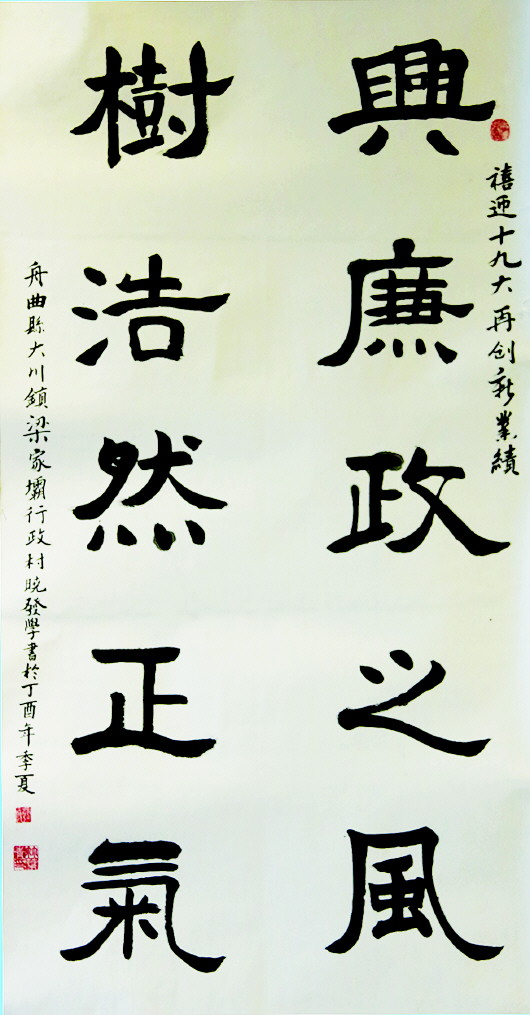 禧迎十九大再创新業績
興廉政之風
樹浩然正氣
舟曲縣大川鎮梁家壩行政村晓發學書於丁酉年季夏